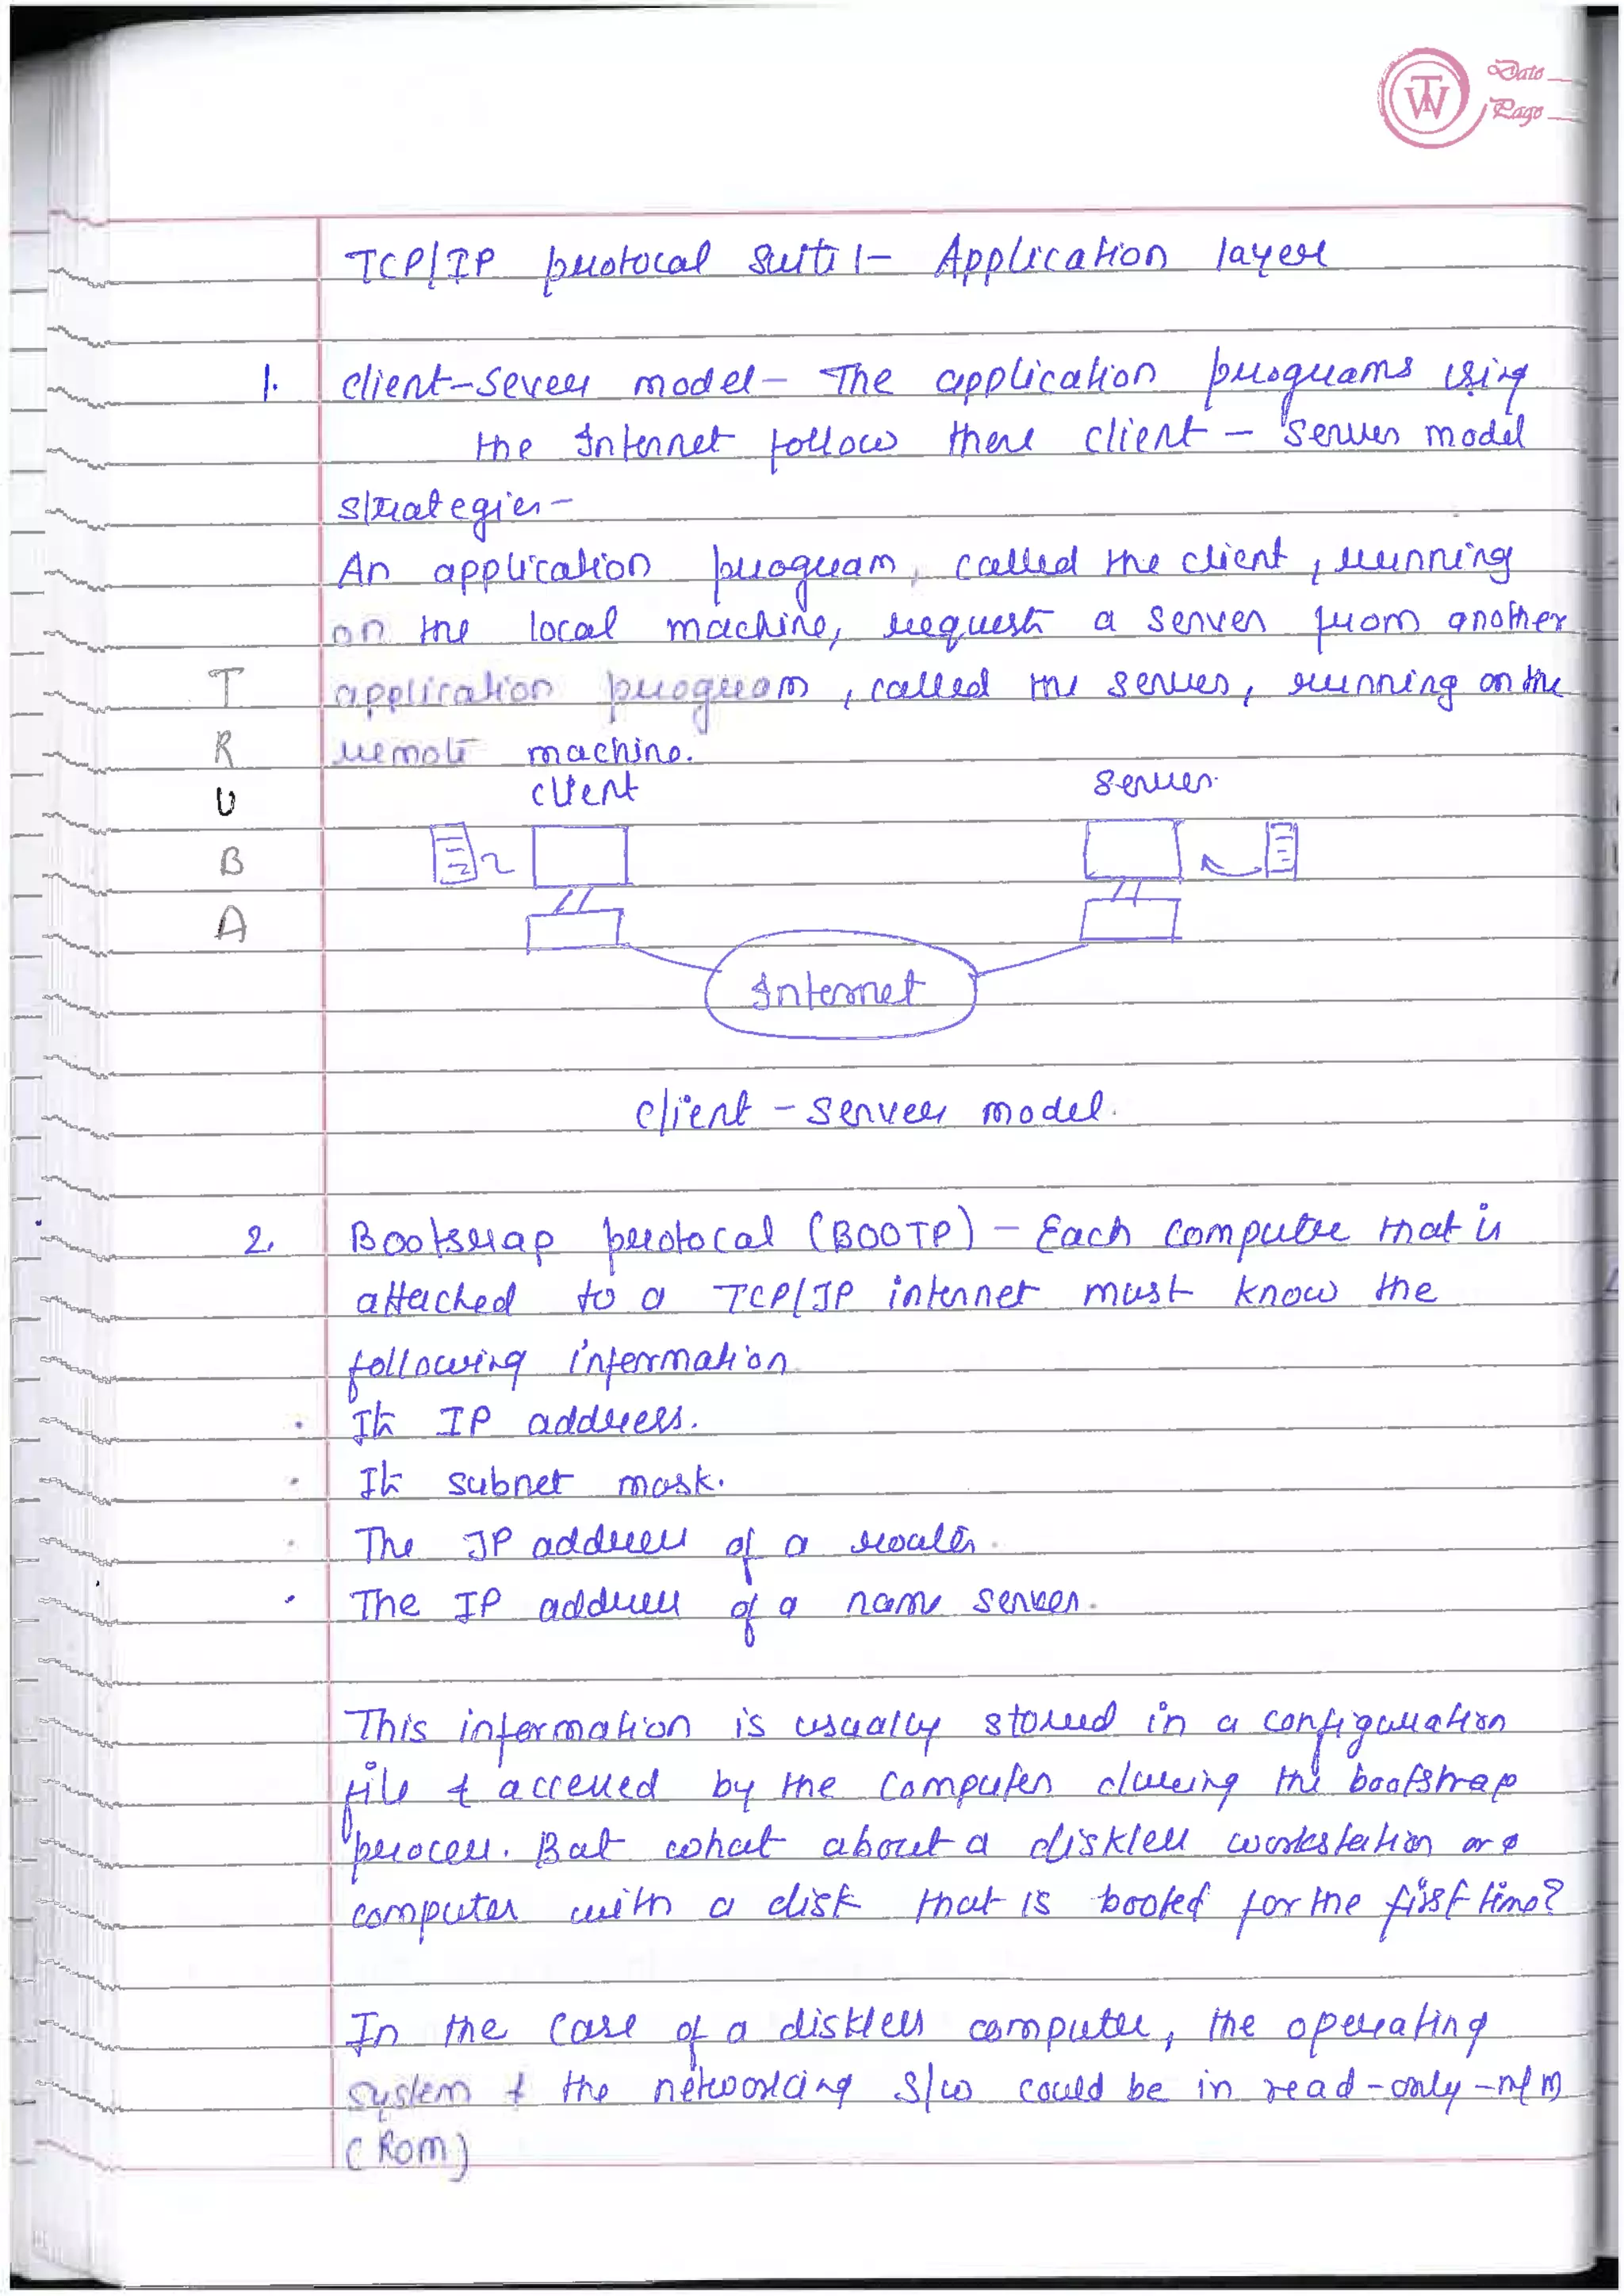 TW
Date
Page
TCP/IP protocal Suite 1- Application layer
1. client-Sever model- The application programs using
the Internet follow there client - server model
strategies-
An application program, called the client, running
on the local machine, request a server from another
T application program, called the server, running on the
R remote machine.
U client server
B
A
Internet
client - server model.
2. Bootstrap protocal (BOOTP) - Each computer that is
attached to a TCP/IP internet must know the
following information
. Its IP address.
. Its subnet mask.
. The IP address of a router.
. The IP address of a name server.
This information is usually stored in a configuration
file & accessed by the computer during the bootstrap
process. But what about a diskless workstation or a
computer with a disk that is booted for the first time?
In the case of a diskless computer, the operating
system & the networking S/w could be in read-only-m/m
(Rom)